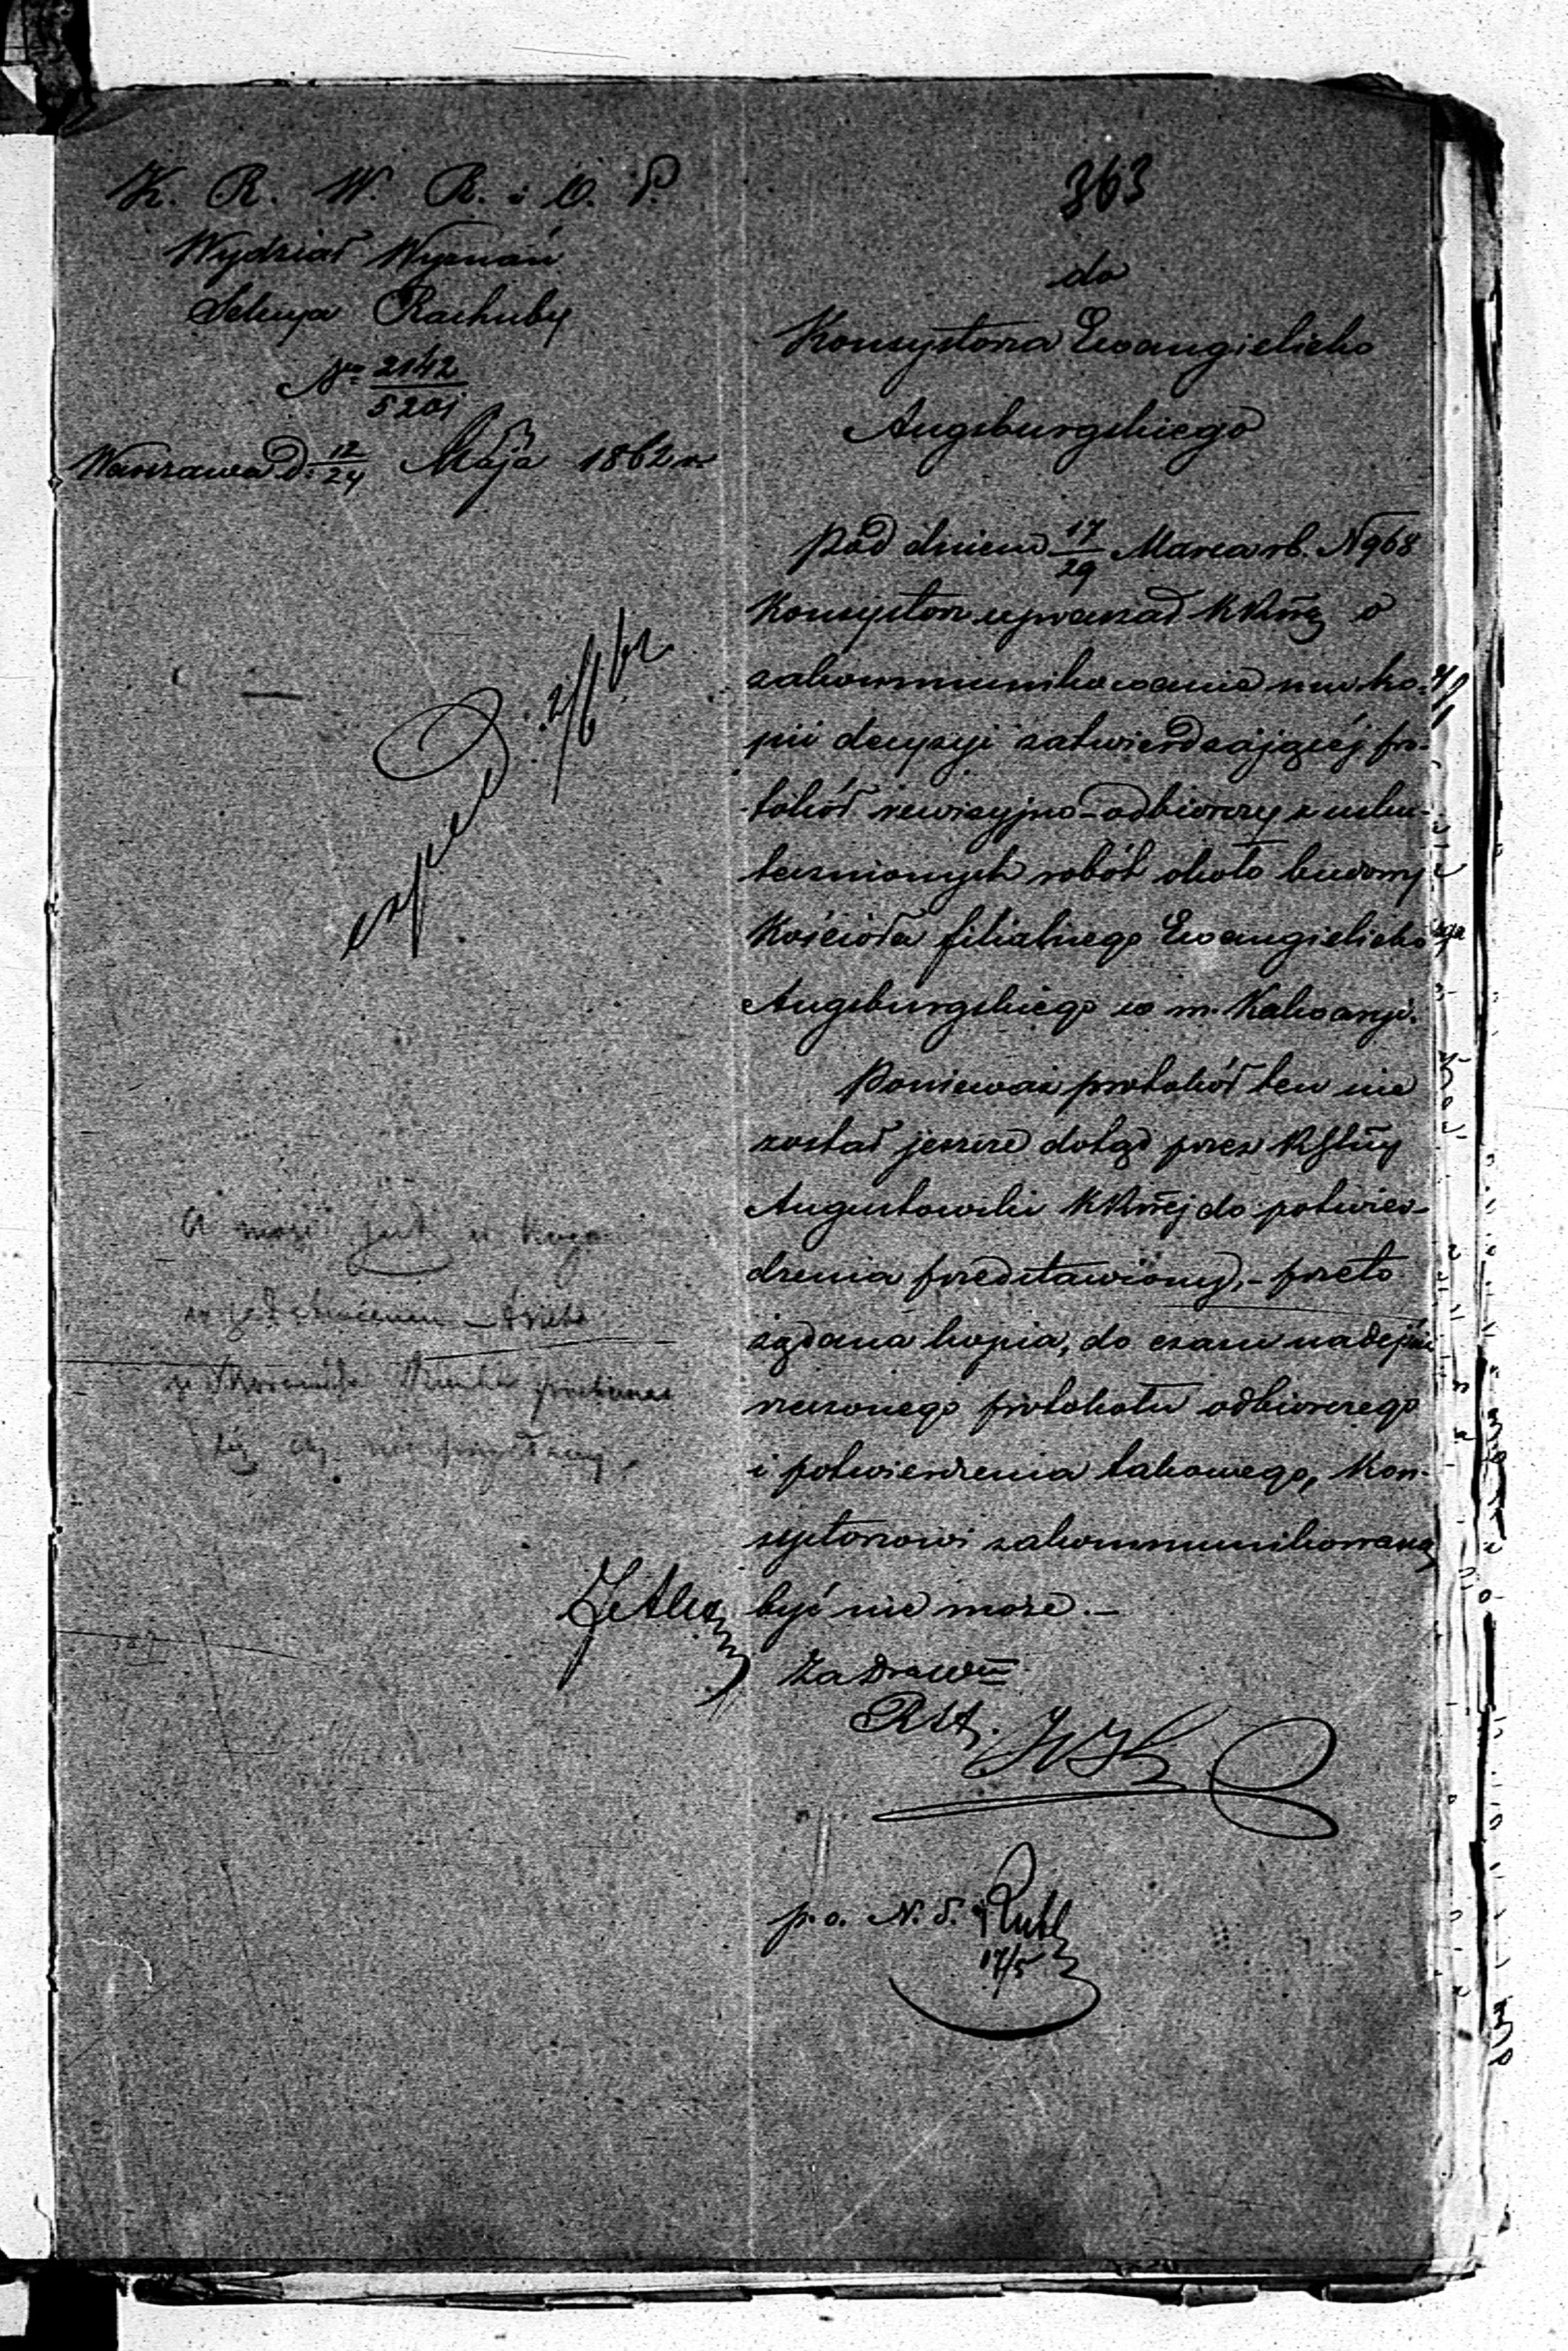 K. R. W. R. i O. P.
Wydział Wyznań
Sekcya Rachuby
Nr 2142/5201
Warszawa D. 12/24 Maja 1862 r.
exped. 2/6 62
363
do
Konsystorza Ewangielicko
Augsburgskiego
Pod dniem 17/29 Marca rb. N 968
Konsystorz upraszał KRkę o
zakommunikowanie mu ko-
pii decyzyi zatwierdzającéj pro-
tokół rewizyjno-odbiorczy z usku-
tecznionych robót około budowy
Kościoła filialnego Ewangielicko
Augsburgskiego w m. Kalwaryi.
Ponieważ protokół ten nie
został jeszcze dotąd przez
Augustowski do potwier-
dzenia przedstawiony, - przeto
żądana kopia, do czasu nadejścia
rzeczonego protokołu odbiorczego
i potwierdzenia takowego, Kon-
systorzowi zakommunikowaną
być nie może. -
p. o. N. S.
17/5